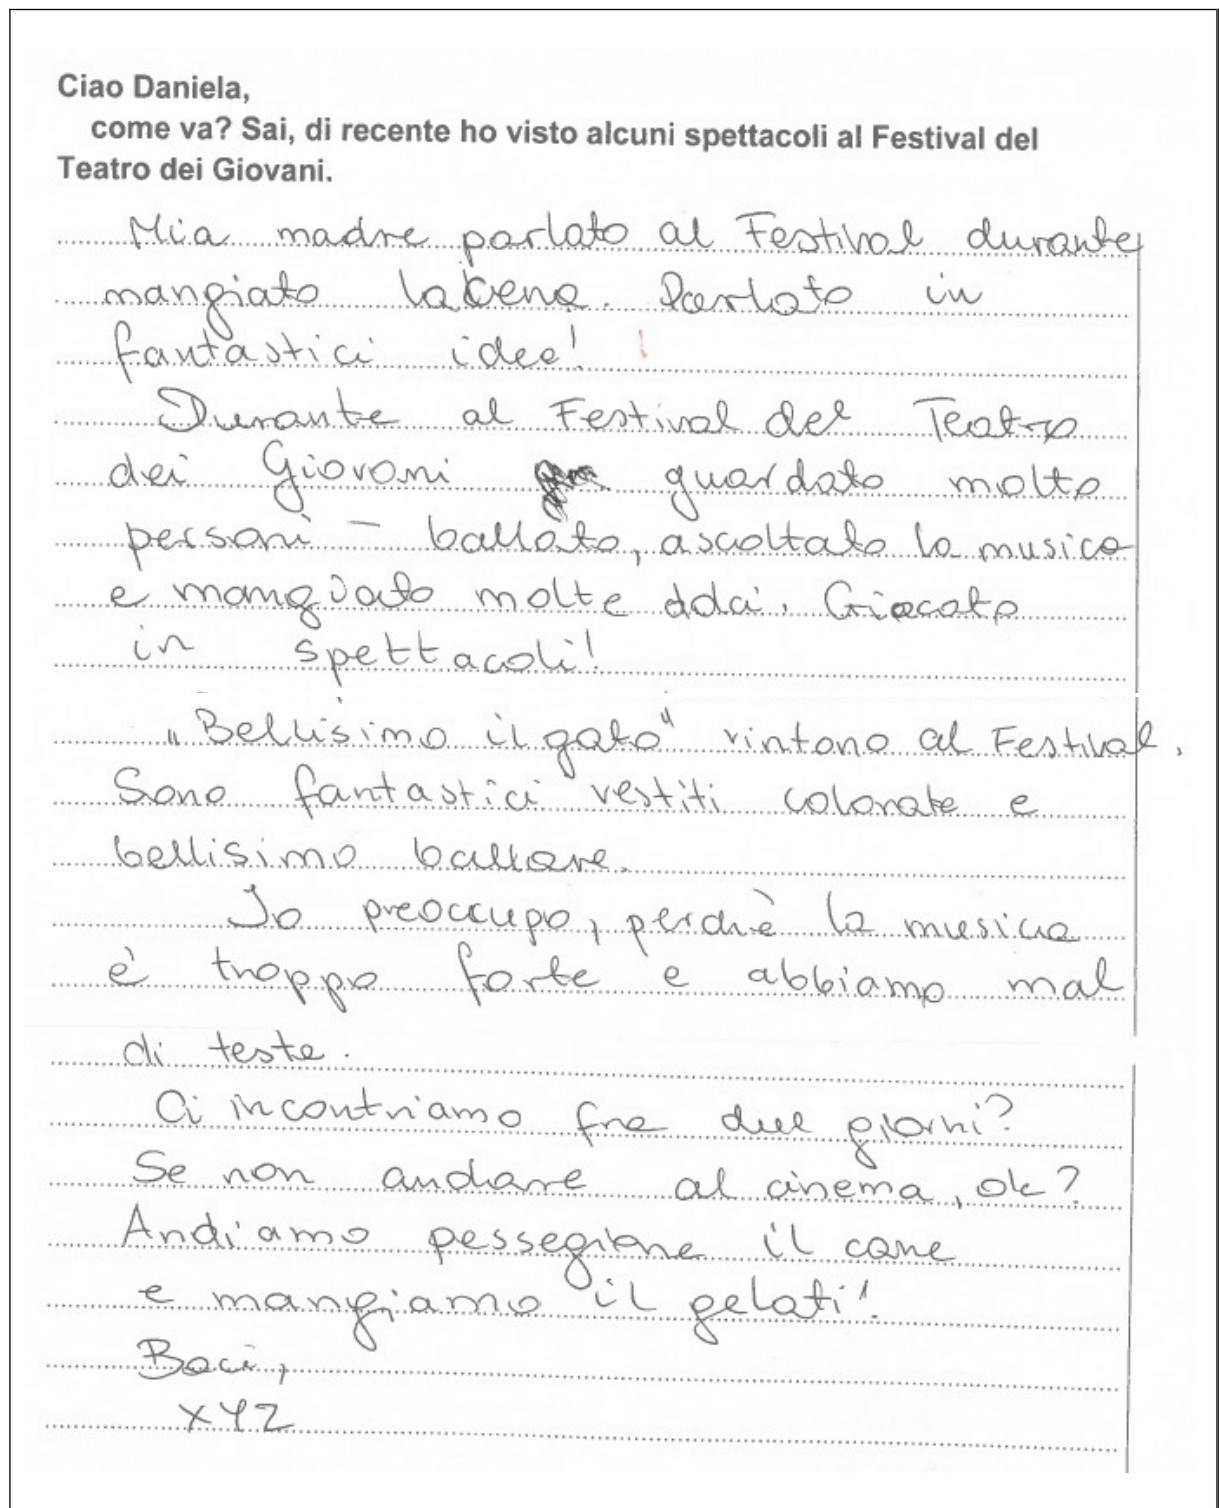 Ciao Daniela,
come va? Sai, di recente ho visto alcuni spettacoli al Festival del
Teatro dei Giovani.
Mia madre parlato al Festival durante
mangiato la cena. Parlato in
fantastici idee!
Durante al Festival del Teatro
dei Giovani guardato molto
persani – ballato, ascoltato la musica
e mangiato molte dolci. Giocato
in spettacoli!
„Bellisimo il gato" rintono al Festival.
Sono fantastici vestiti colorate e
bellisimo ballare.
Io preoccupo, perchè la musica
è troppo forte e abbiamo mal
di teste.
Ci incontriamo fra due giorni?
Se non andare al cinema, ok?
Andiamo pessegiare il cane
e mangiamo il gelati!
Baci,
XYZ